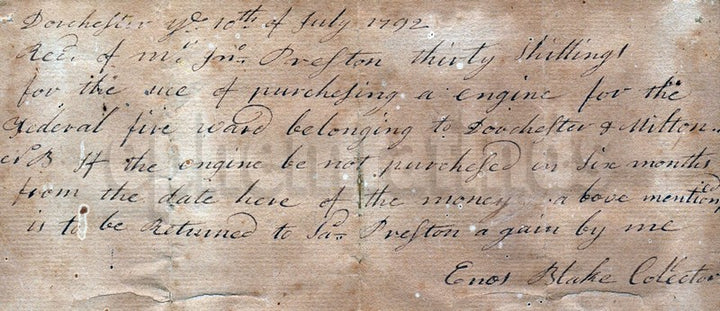 Dorchester ye 10th of July 1792
Recd. of mr. Jno. Preston thirty shillings
for the use of purchesing a engine for the
Federal fire ward belonging to Dorchester & Milton
N B If the engine be not purchesed in six months
from the date here of the money above mention
is to be Returned to Preston again by me
Enos Blake Colector